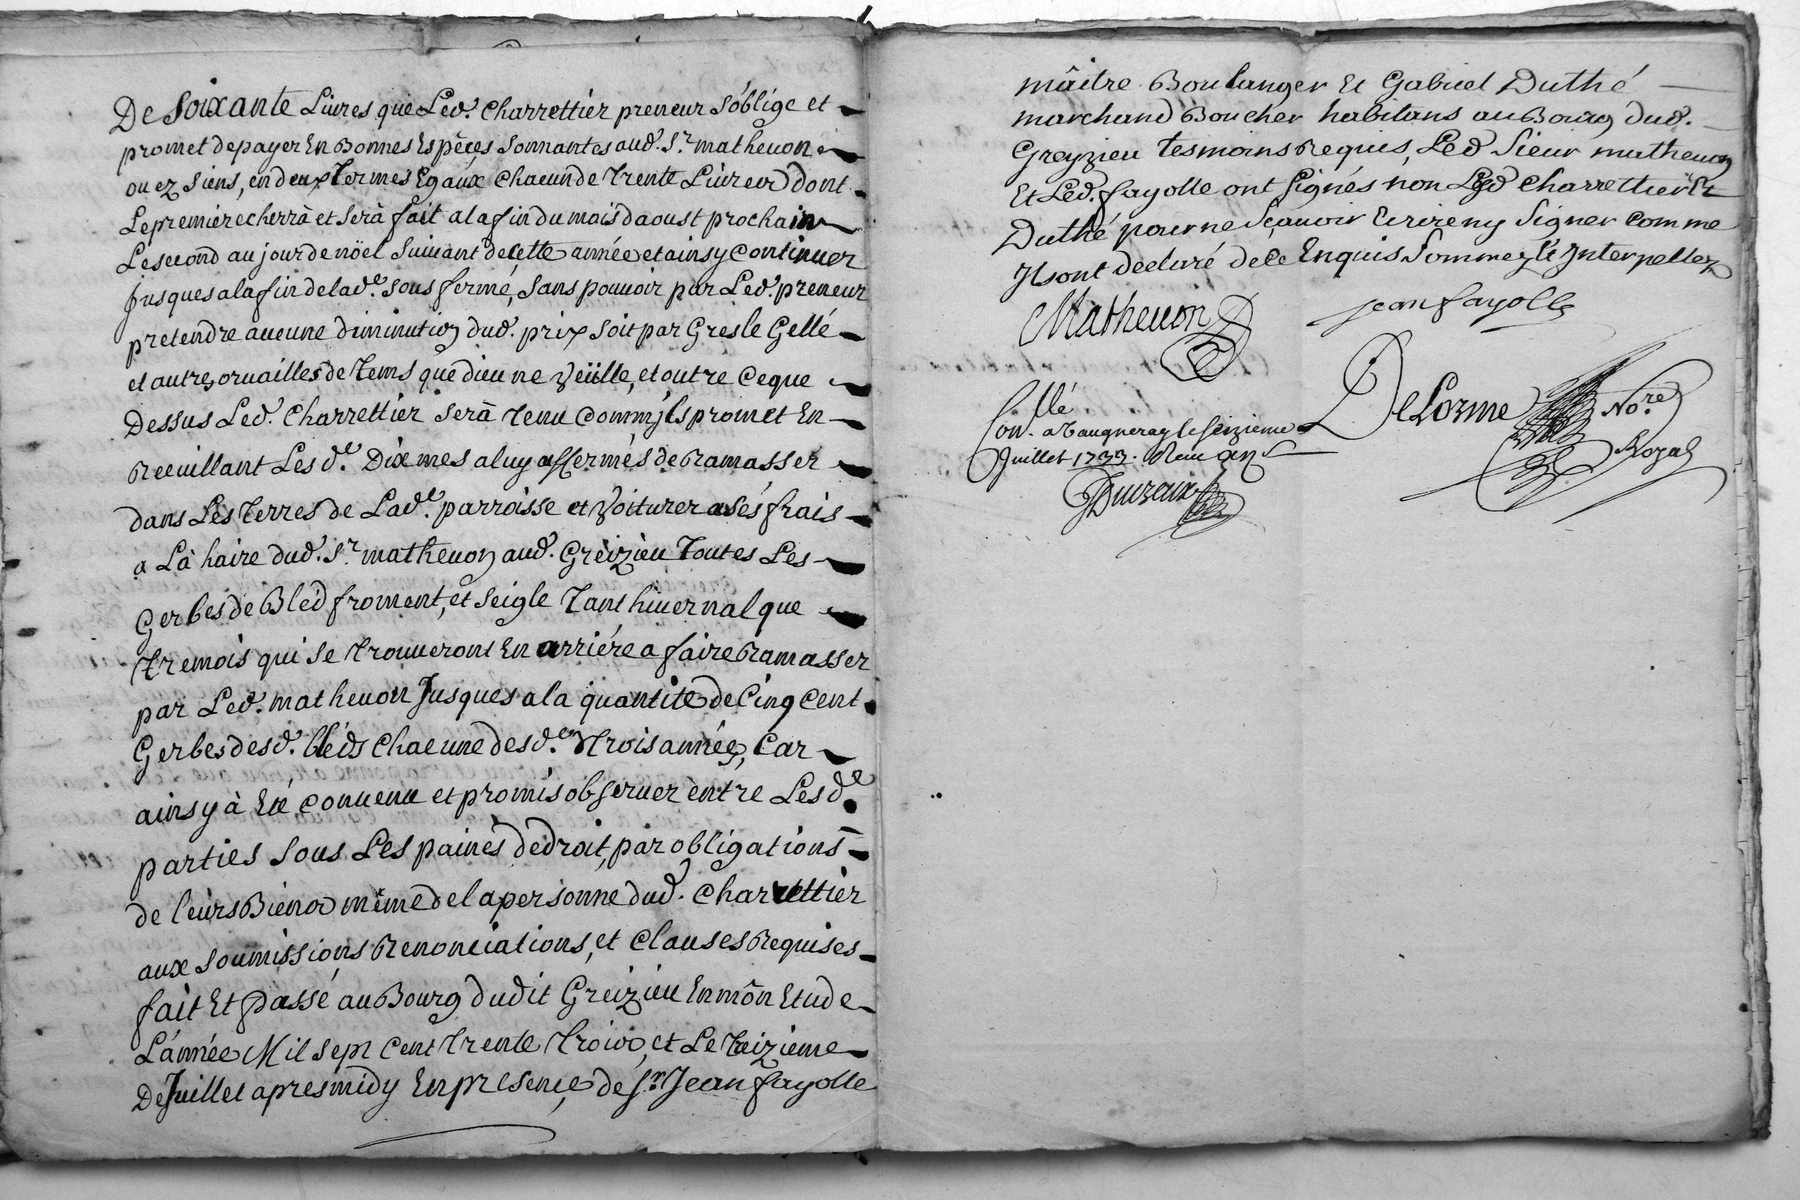 De Soixante Livres que Led.t Charrettier preneur s'oblige et
promet de payer En Bonnes Espèces Sonnantes aud.t S.r matheuon
ou ez siens, en deux Termes Egaux chacun de trente Livres dont
Le premier echerrà et serà fait a la fin du mois daoust prochain
Le second au jour de nöel suiuant de cette année et ainsy continuer
Jusques a la fin de lad.e sous ferme, sans pouuoir par Led.t preneur
pretendre aucune diminution dud.t prix soit par Gresle Gellé
et autres oruailles de Tems que dieu ne veüille, et outre ce que
Dessus Led.t Charrettier serà tenu comm'jl promet En
Recuillant Lesd.e Dixmes a luy affermés de Ramasser
dans Les Terres de Lad.e parroisse et voiturer a sés frais
a Là haire dud.t S.r matheuon aud.t Grèizieu Toutes Les
Gerbes de Bléd froment, et seigle Tant hiuernal que
tremois qui se trouueront En arriére a faire Ramasser
par Led.t matheuon Jusques a la quantité de Cinq cent
Gerbes desd.t bléds chacune desd. trois années, Car
ainsy à Eté conuenu et promis obseruer entre Lesd.e
parties sous Les paines de droit, par obligations
de leurs Biens même de la personne dud.t Charrettier
aux soumissions Renonciations, et clauses Requises
fait Et Passé au Bourg dudit Greizieu En môn Etude
L'année Mil sept cent trente trois, et Le treizieme
De Juillet apres midy En presence de S.r Jean fayolle
mâitre Boulanger Et Gabriel Duthé
marchand Boucher habitans au Bourg dud.t
Greyzieu tesmoins Requis, Led. Sieur matheuon
Et Led. fayolle ont signés non Led. Charrettier Et
Duthé pour ne sçauoir Ecrire ny signer comme
Jls ont declaré de ce Enquis sommez et Interpellez
Matheuon
jean fayolle
DeLorme No.re
Royal
Con.llé a Vaugneray le seizieme
Juillet 1733. Reçu